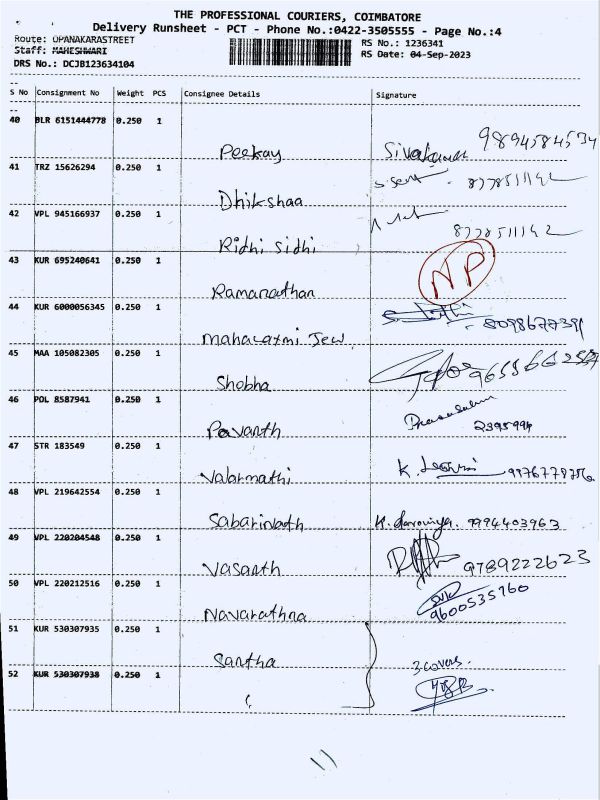 THE PROFESSIONAL COURIERS, COIMBATORE
Delivery Runsheet - PCT - Phone No.:0422-3505555 - Page No.:4
Route: OPANAKARASTREET RS No.: 1236341
Staff: MAHESHWARI RS Date: 04-Sep-2023
DRS No.: DCJB123634104
S No Consignment No Weight PCS Consignee Details Signature
40 BLR 6151444778 0.250 1
Peekay Sivakumar 9894584534
41 TRZ 15626294 0.250 1
Dhikshaa
42 VPL 945166937 0.250 1
Ridhi Sidhi
43 KUR 695240641 0.250 1
Ramanathan NP
44 KUR 6000056345 0.250 1
Mahalaxmi Jew 8098677391
45 MAA 105082305 0.250 1
Shobha
46 POL 8587941 0.250 1
Pavanth 2395994
47 STR 183549 0.250 1
Valarmathi K.
48 VPL 219642554 0.250 1
Sabarinath 9994403963
49 VPL 220204548 0.250 1
Vasanth 9789222623
50 VPL 220212516 0.250 1
Navarathna 9600535760
51 KUR 530307935 0.250 1
Santha 3 covers.
52 KUR 530307938 0.250 1
11